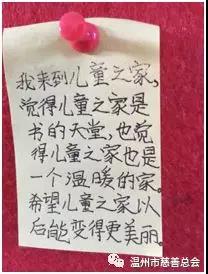 我来到儿童之家,
觉得儿童之家是
书的天堂,也觉
得儿童之家也是
一个温暖的家。
希望儿童之家以
后能变得更美丽。
温州市慈善总会